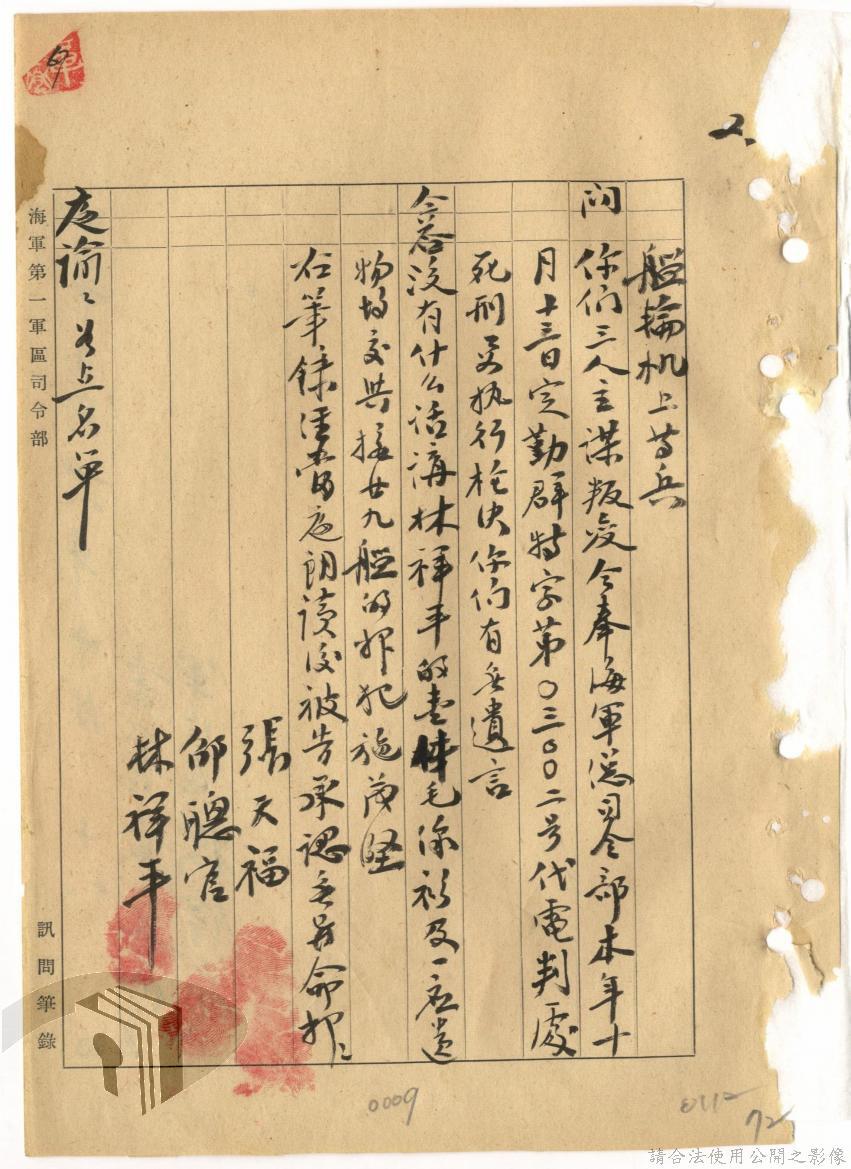 2、
艇輪机上等兵
問 你们三人主謀叛变今奉海軍总司令部本年十
月十三日定勤群特字第〇三〇〇二号代電判處
死刑立执行枪决你们有無遺言
仝答没有什么话講林祥平的壹件毛線衫及一应遺
物均交共接廿九艇的押犯施茂堅
右筆錄經當庭朗读後被告承認無異命押、
張天福
邱聰官
林祥平
庭諭、名單
海軍第一軍區司令部
訊問筆錄
0009
72
請合法使用公開之影像